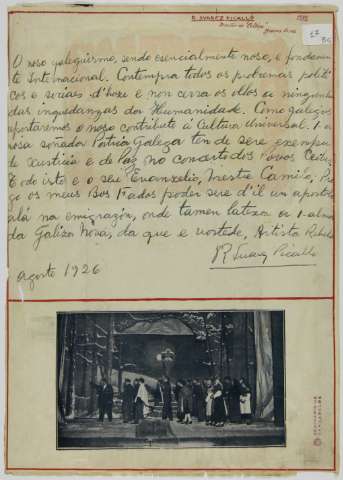 R. SUAREZ PICALLO
Director de "Céltiga"
Buenos Aires
O noso galeguismo, sendo esencialmente noso, é fondamen
te Internacional. Contempra todos os probremas políti
cos e sociaes d'hoxe e non cerra os ollos a ningunha
das inquedanzas da Humanidade. Como galegos
aportaremos o noso contributo á Cultura Universal. I-a
nosa soñada Patria Galega ten de sere exempro
de Xusticia e de Paz no concerto dos Povos Ceibes
Todo isto é o seu Evanxelio, Mestre Camilo; Pre
go os meus Bos Fados poder sere d'il un apostol
alá na emigrazón, onde tamen latexa a i-alma
da Galiza Nova, da que é vostede, Artista Rebelde
R Suarez Picallo
Agosto 1926